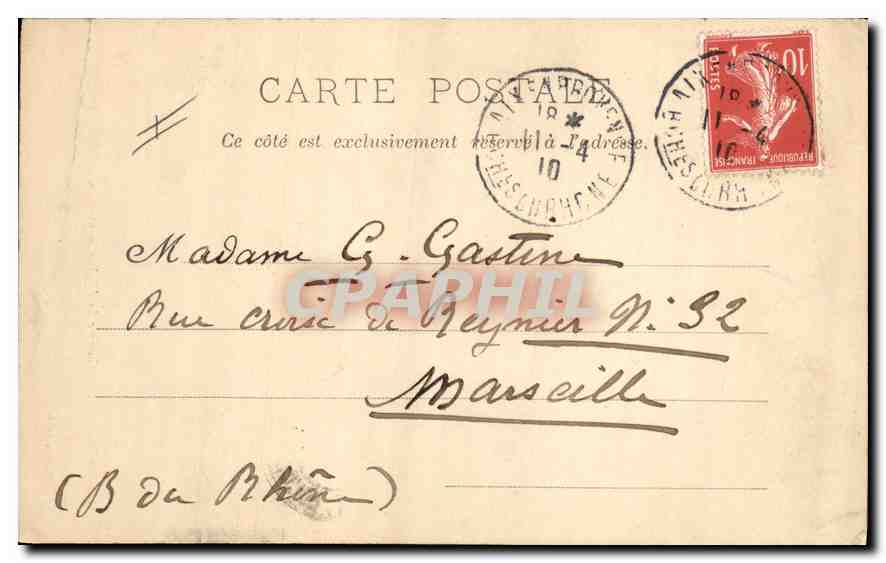 CARTE POSTALE
Ce côté est exclusivement réservé à l'adresse.
AIX EN PROVENCE
18 *
11 - 4
10
BCHES DU RHONE
AIX
18 *
11 - 4
10
BCHES DU RH
10c
POSTES
REPUBLIQUE FRANÇAISE
Madame G. Gastine
CPAPHIL
Rue croix de Reynier N: 92
Marseille
(B du Rhône)